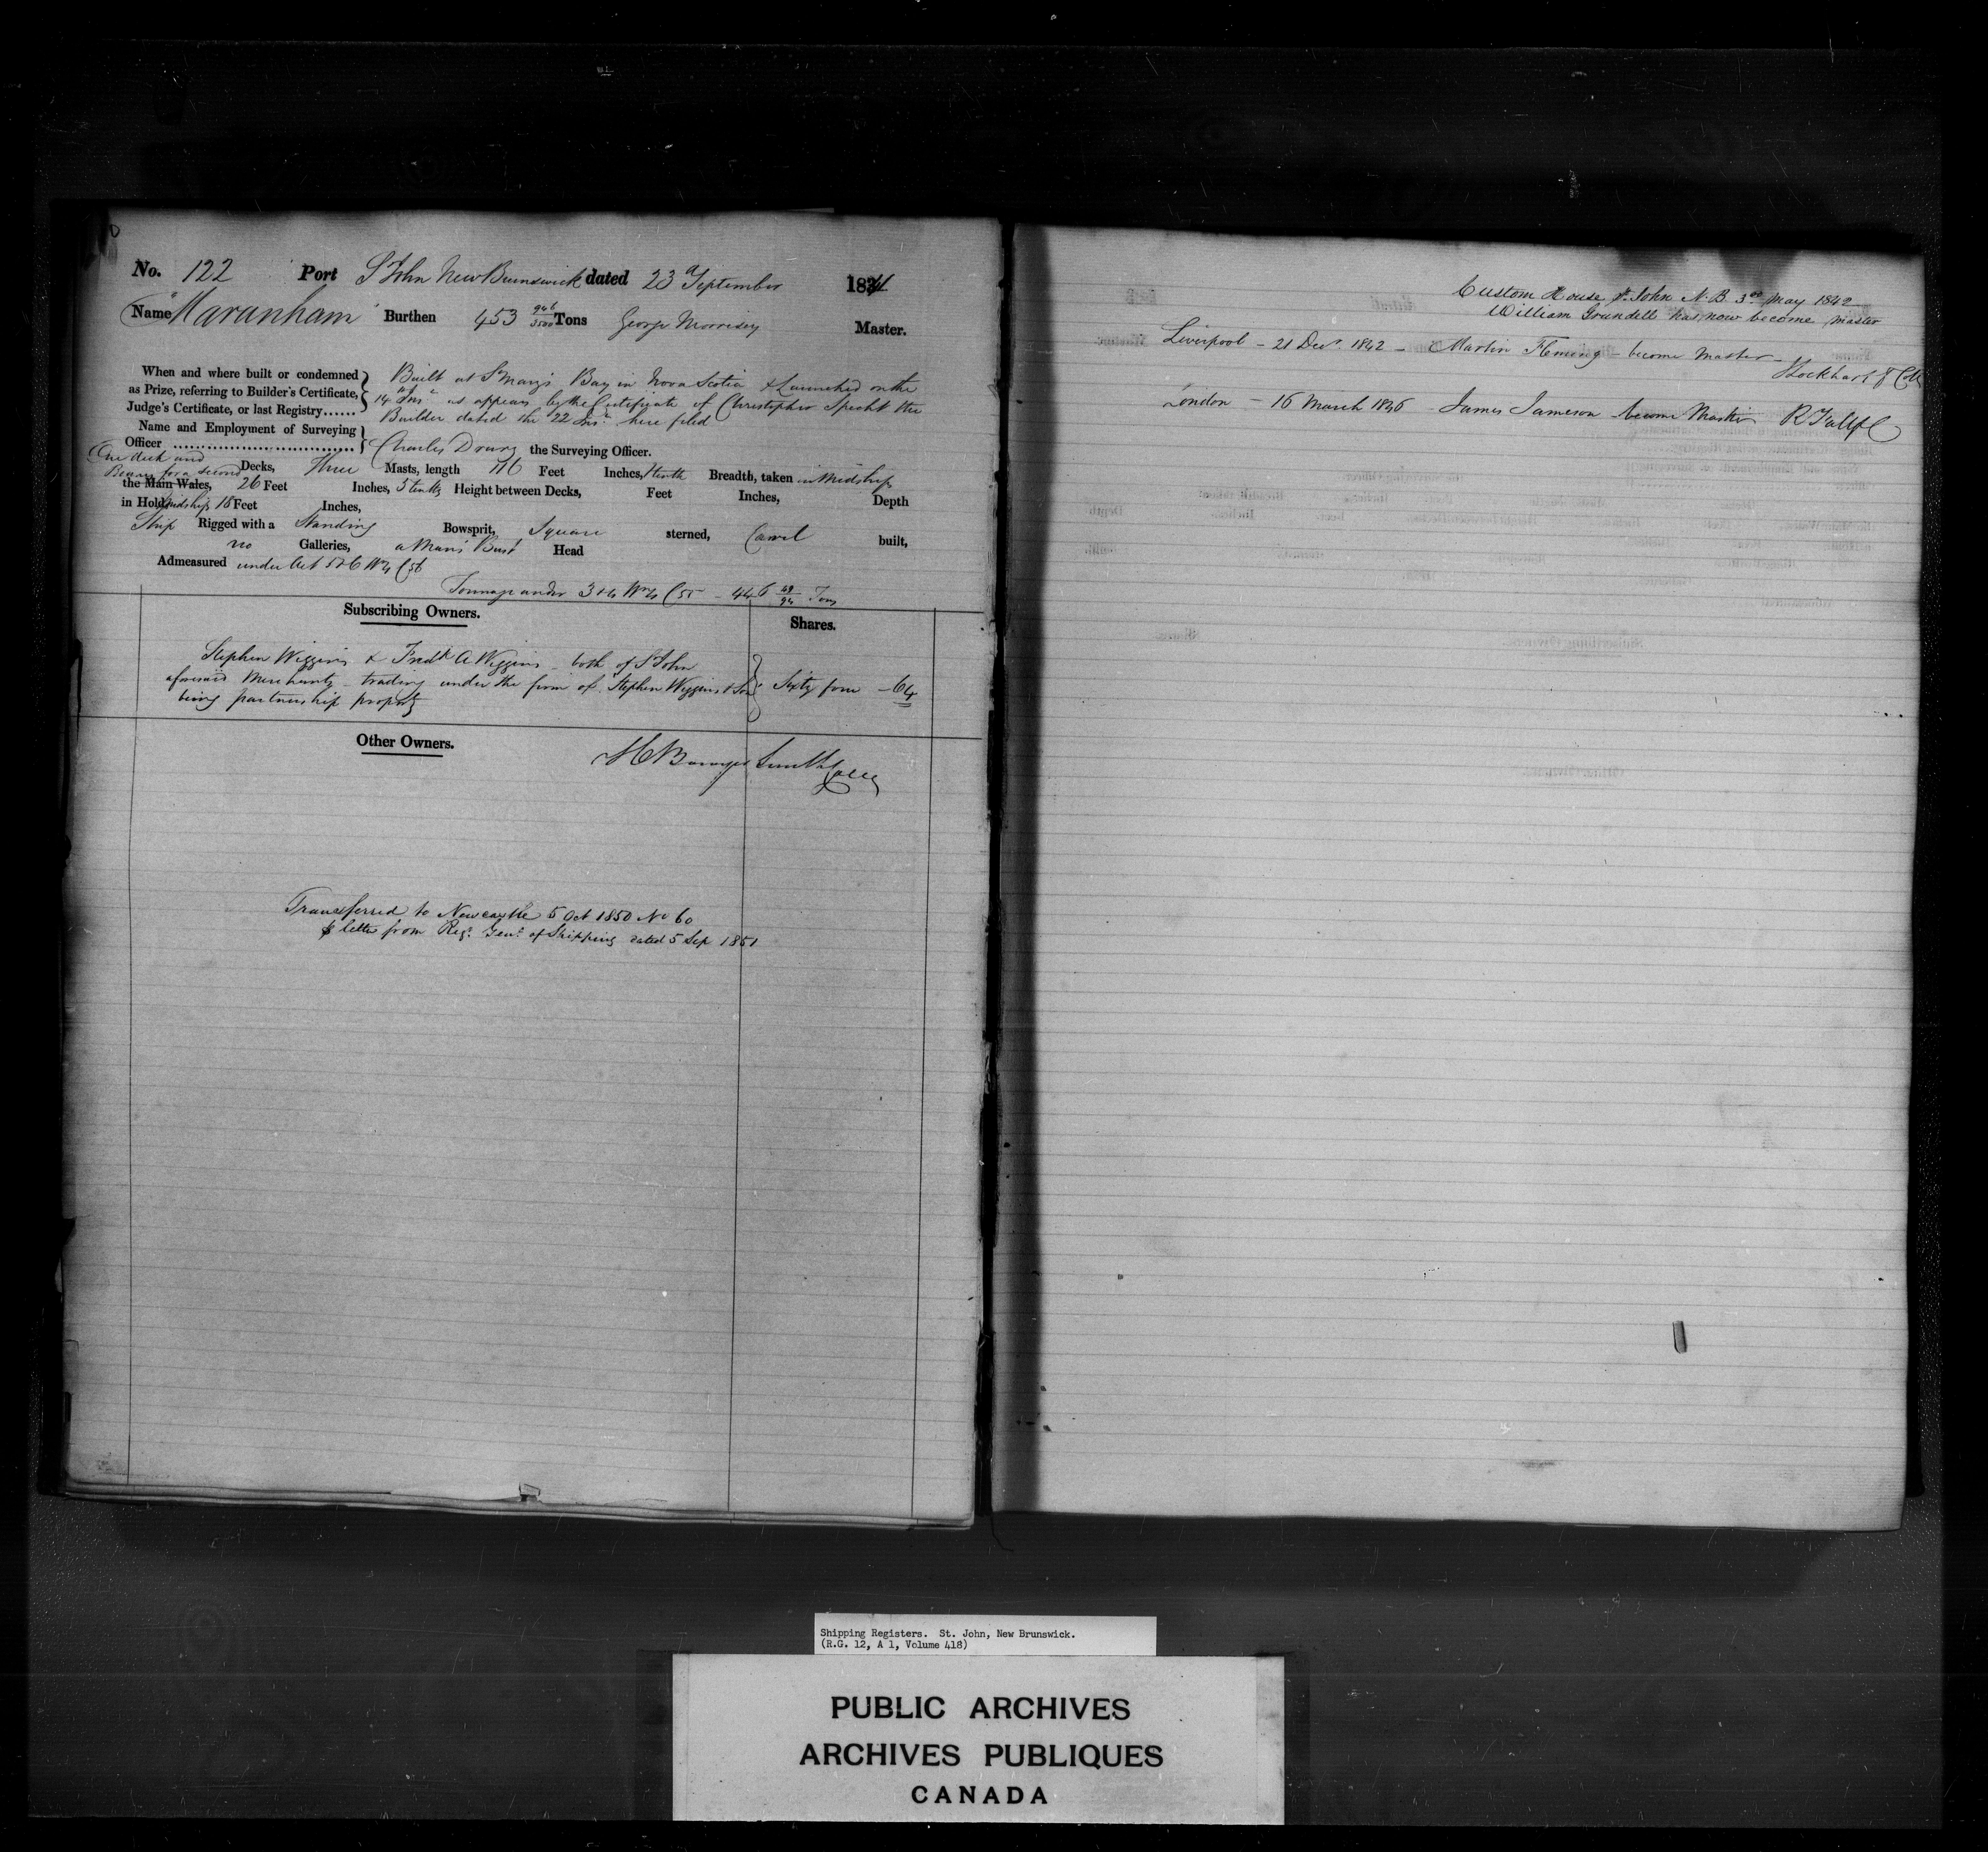 No. 122 Port St John New Brunswick dated 23d September 1841
Name "Maranham" Burthen 453 946/3500 Tons George Morrisey Master.
When and where built or condemned
as Prize, referring to Builder's Certificate,
Judge's Certificate, or last Registry......
Built at St Mary's Bay in Nova Scotia & Launched on the
14th Inst as appears by the Certificate of Christopher Specht the
Builder dated the 22 Inst here filed
Name and Employment of Surveying
Officer ....................................
Charles Drury the Surveying Officer.
One deck and
Beams for a second Decks, Three Masts, length 116 Feet Inches, 1 tenth Breadth, taken in Midships
the Main Wales, 26 Feet Inches, 5 tenths Height between Decks, Feet Inches, Depth
in Hold Midships 18 Feet Inches,
Ship Rigged with a Standing Bowsprit, Square sterned, Carvel built,
no Galleries, a Man's Bust Head
Admeasured under Act 5 & 6 Wm 4 C 56
Tonnage under 3 & 4 Wm 4 C 55 - 446 49/94 Tons
Subscribing Owners.
Shares.
Stephen Wiggins & Fredk A Wiggins - both of St John
aforesaid Merchants - trading under the firm of Stephen Wiggins & Son
being partnership property
Sixty four - 64
Other Owners.
H Bowyer Smith Collr
Transferred to Newcastle 5 Oct 1850 No 60
p letter from Regr Genl of Shipping dated 5 Sep 1851
Custom House St. John N.B. 3rd May 1842
William Grundell has now become master
Liverpool - 21 Decr 1842 - Martin Fleming - become Master -
London - 16 March 1846 - James Jameson become Master
Shipping Registers. St. John, New Brunswick.
(R.G. 12, A 1, Volume 418)
PUBLIC ARCHIVES
ARCHIVES PUBLIQUES
CANADA